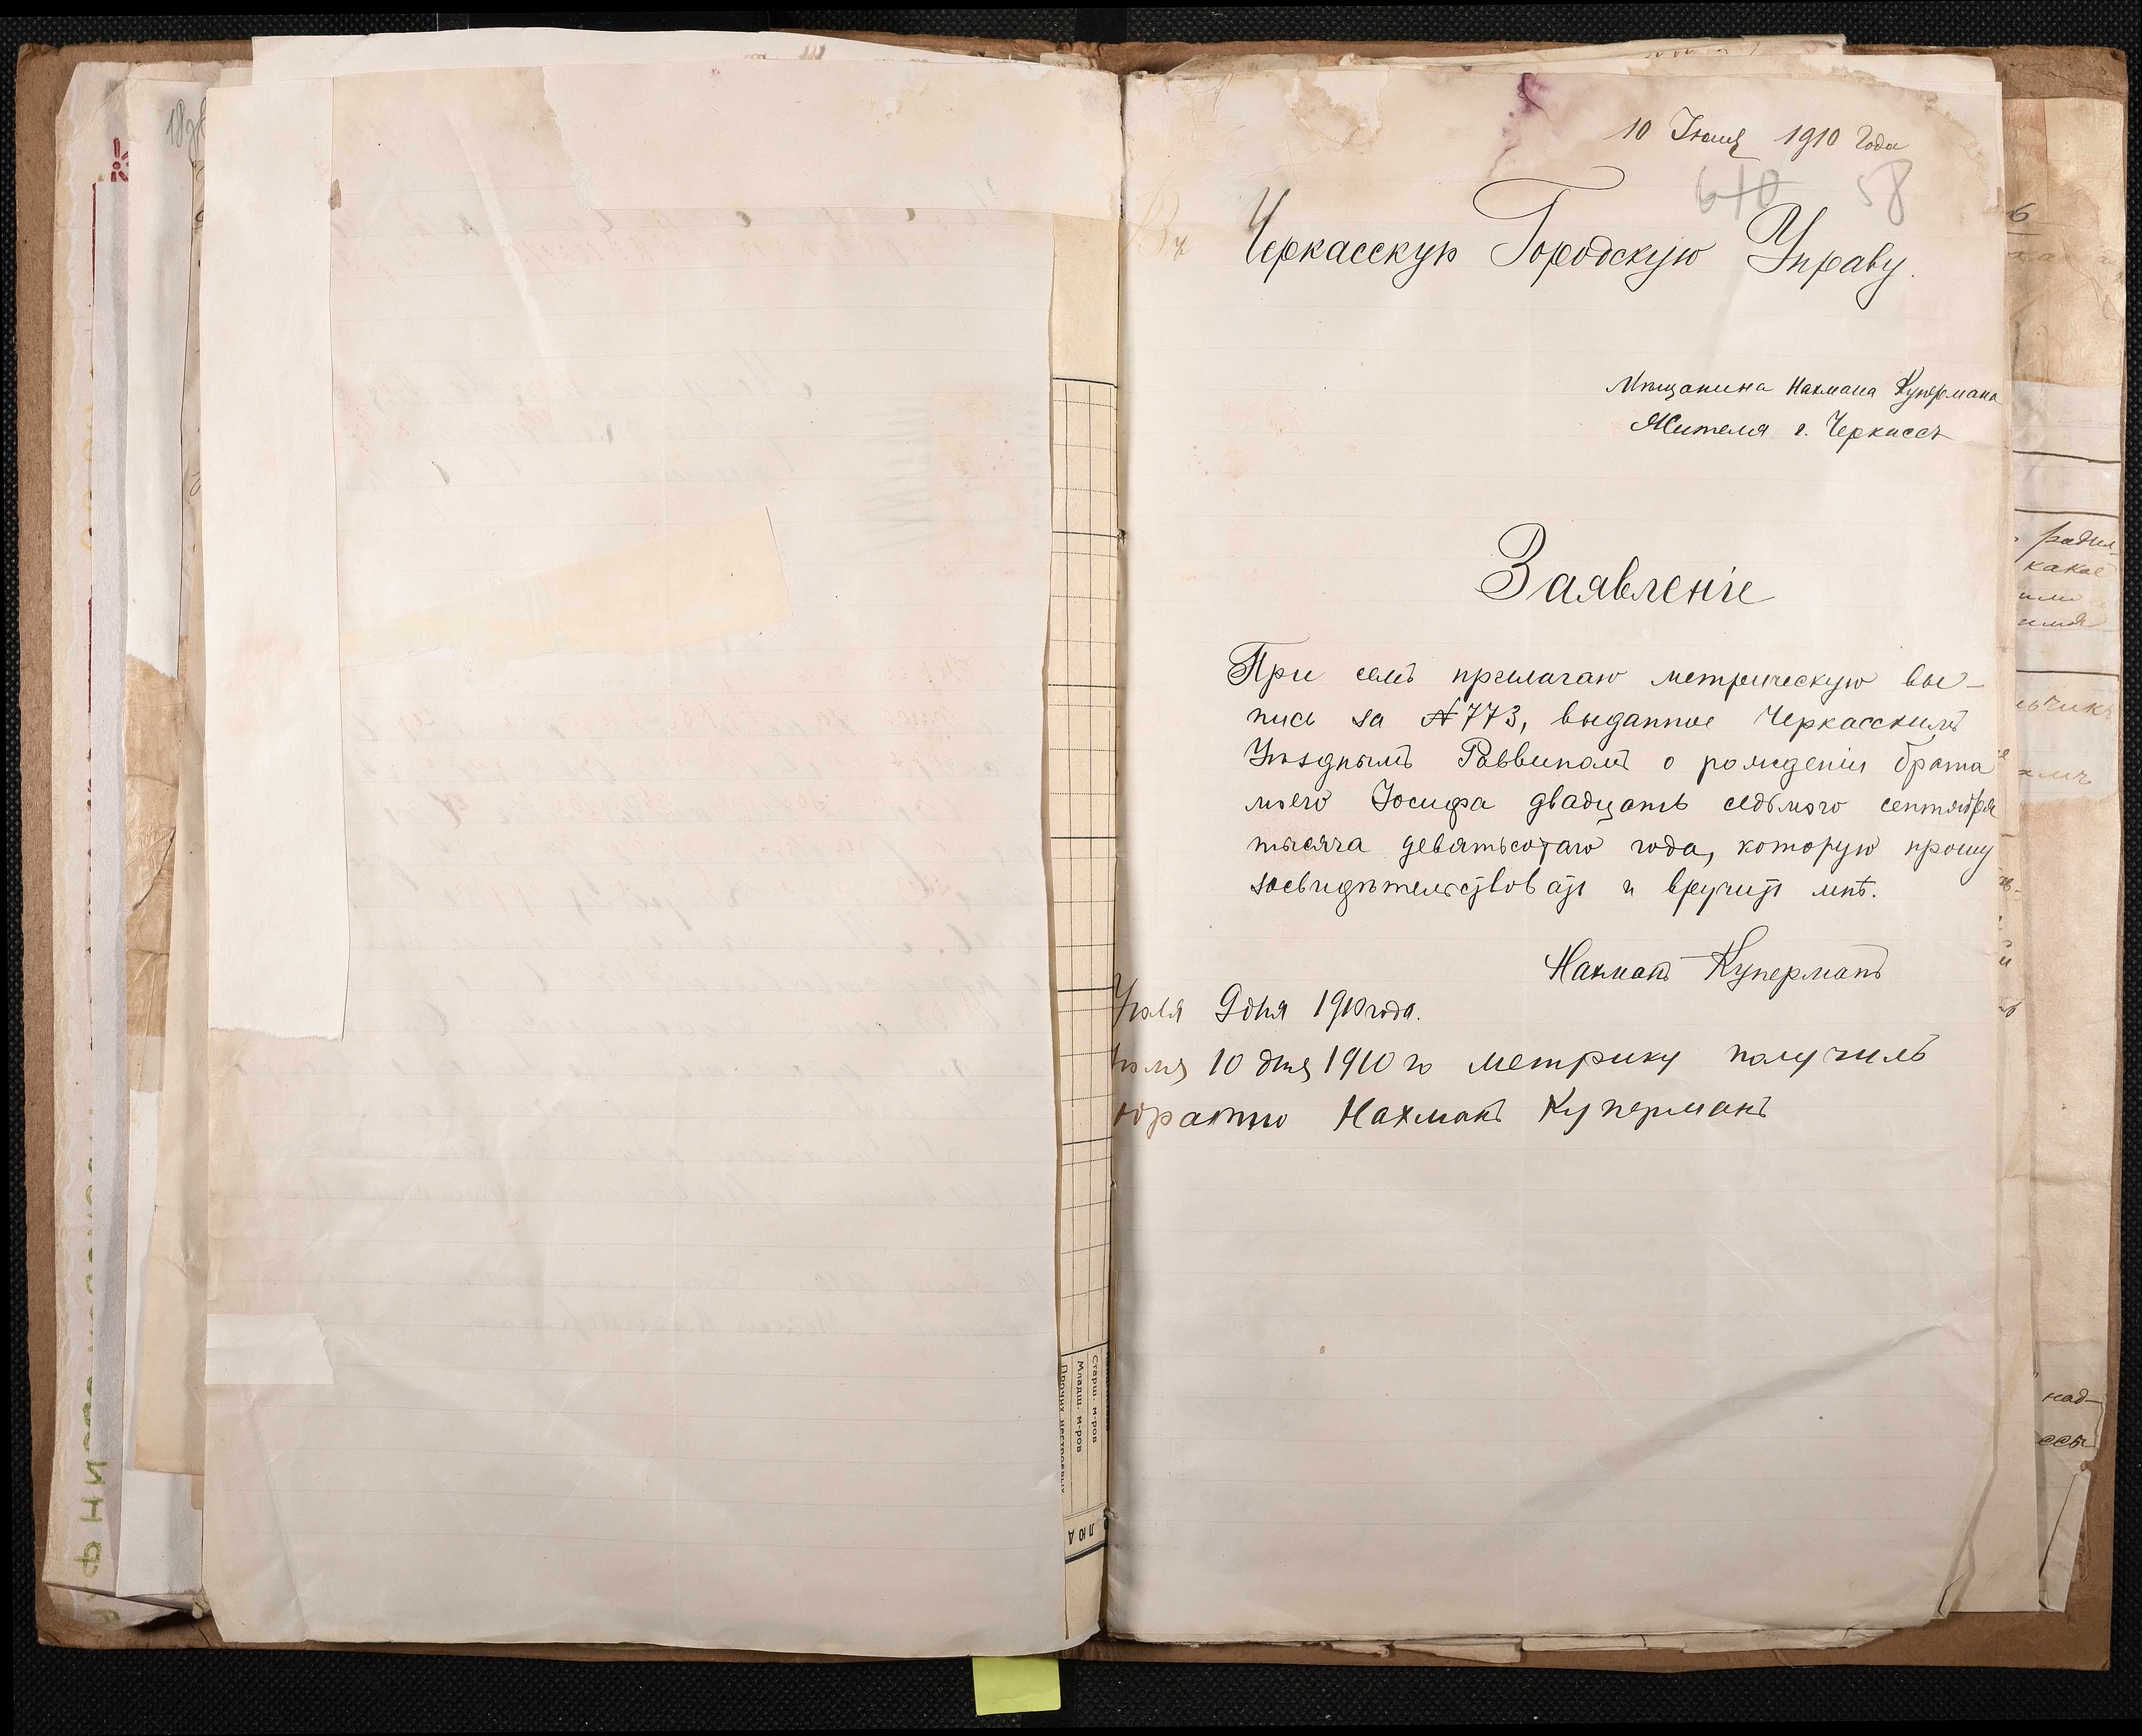 10 Июля 1910 года
610 58
Въ Черкасскую Городскую Управу.
Мѣщанина Нахмана Купермана
Жителя г. Черкассъ
Заявленіе
При семъ прилагаю метрическую вы-
пись за № 773, выданное Черкасскимъ
Уѣзднымъ Раввиномъ о рожденіи брата
моего Іосифа двадцать седьмого сентября
тысяча девятьсотаго года, которую прошу
засвидѣтельствовать и вручить мнѣ.
Нахманъ Куперманъ
Іюля 9 дня 1910 года.
юля 10 дня 1910 го метрику получилъ
обратно Нахманъ Куперманъ
Старш. м-ров
Младш. м-ров
Прочих
радил-
какое
или
имя
над-